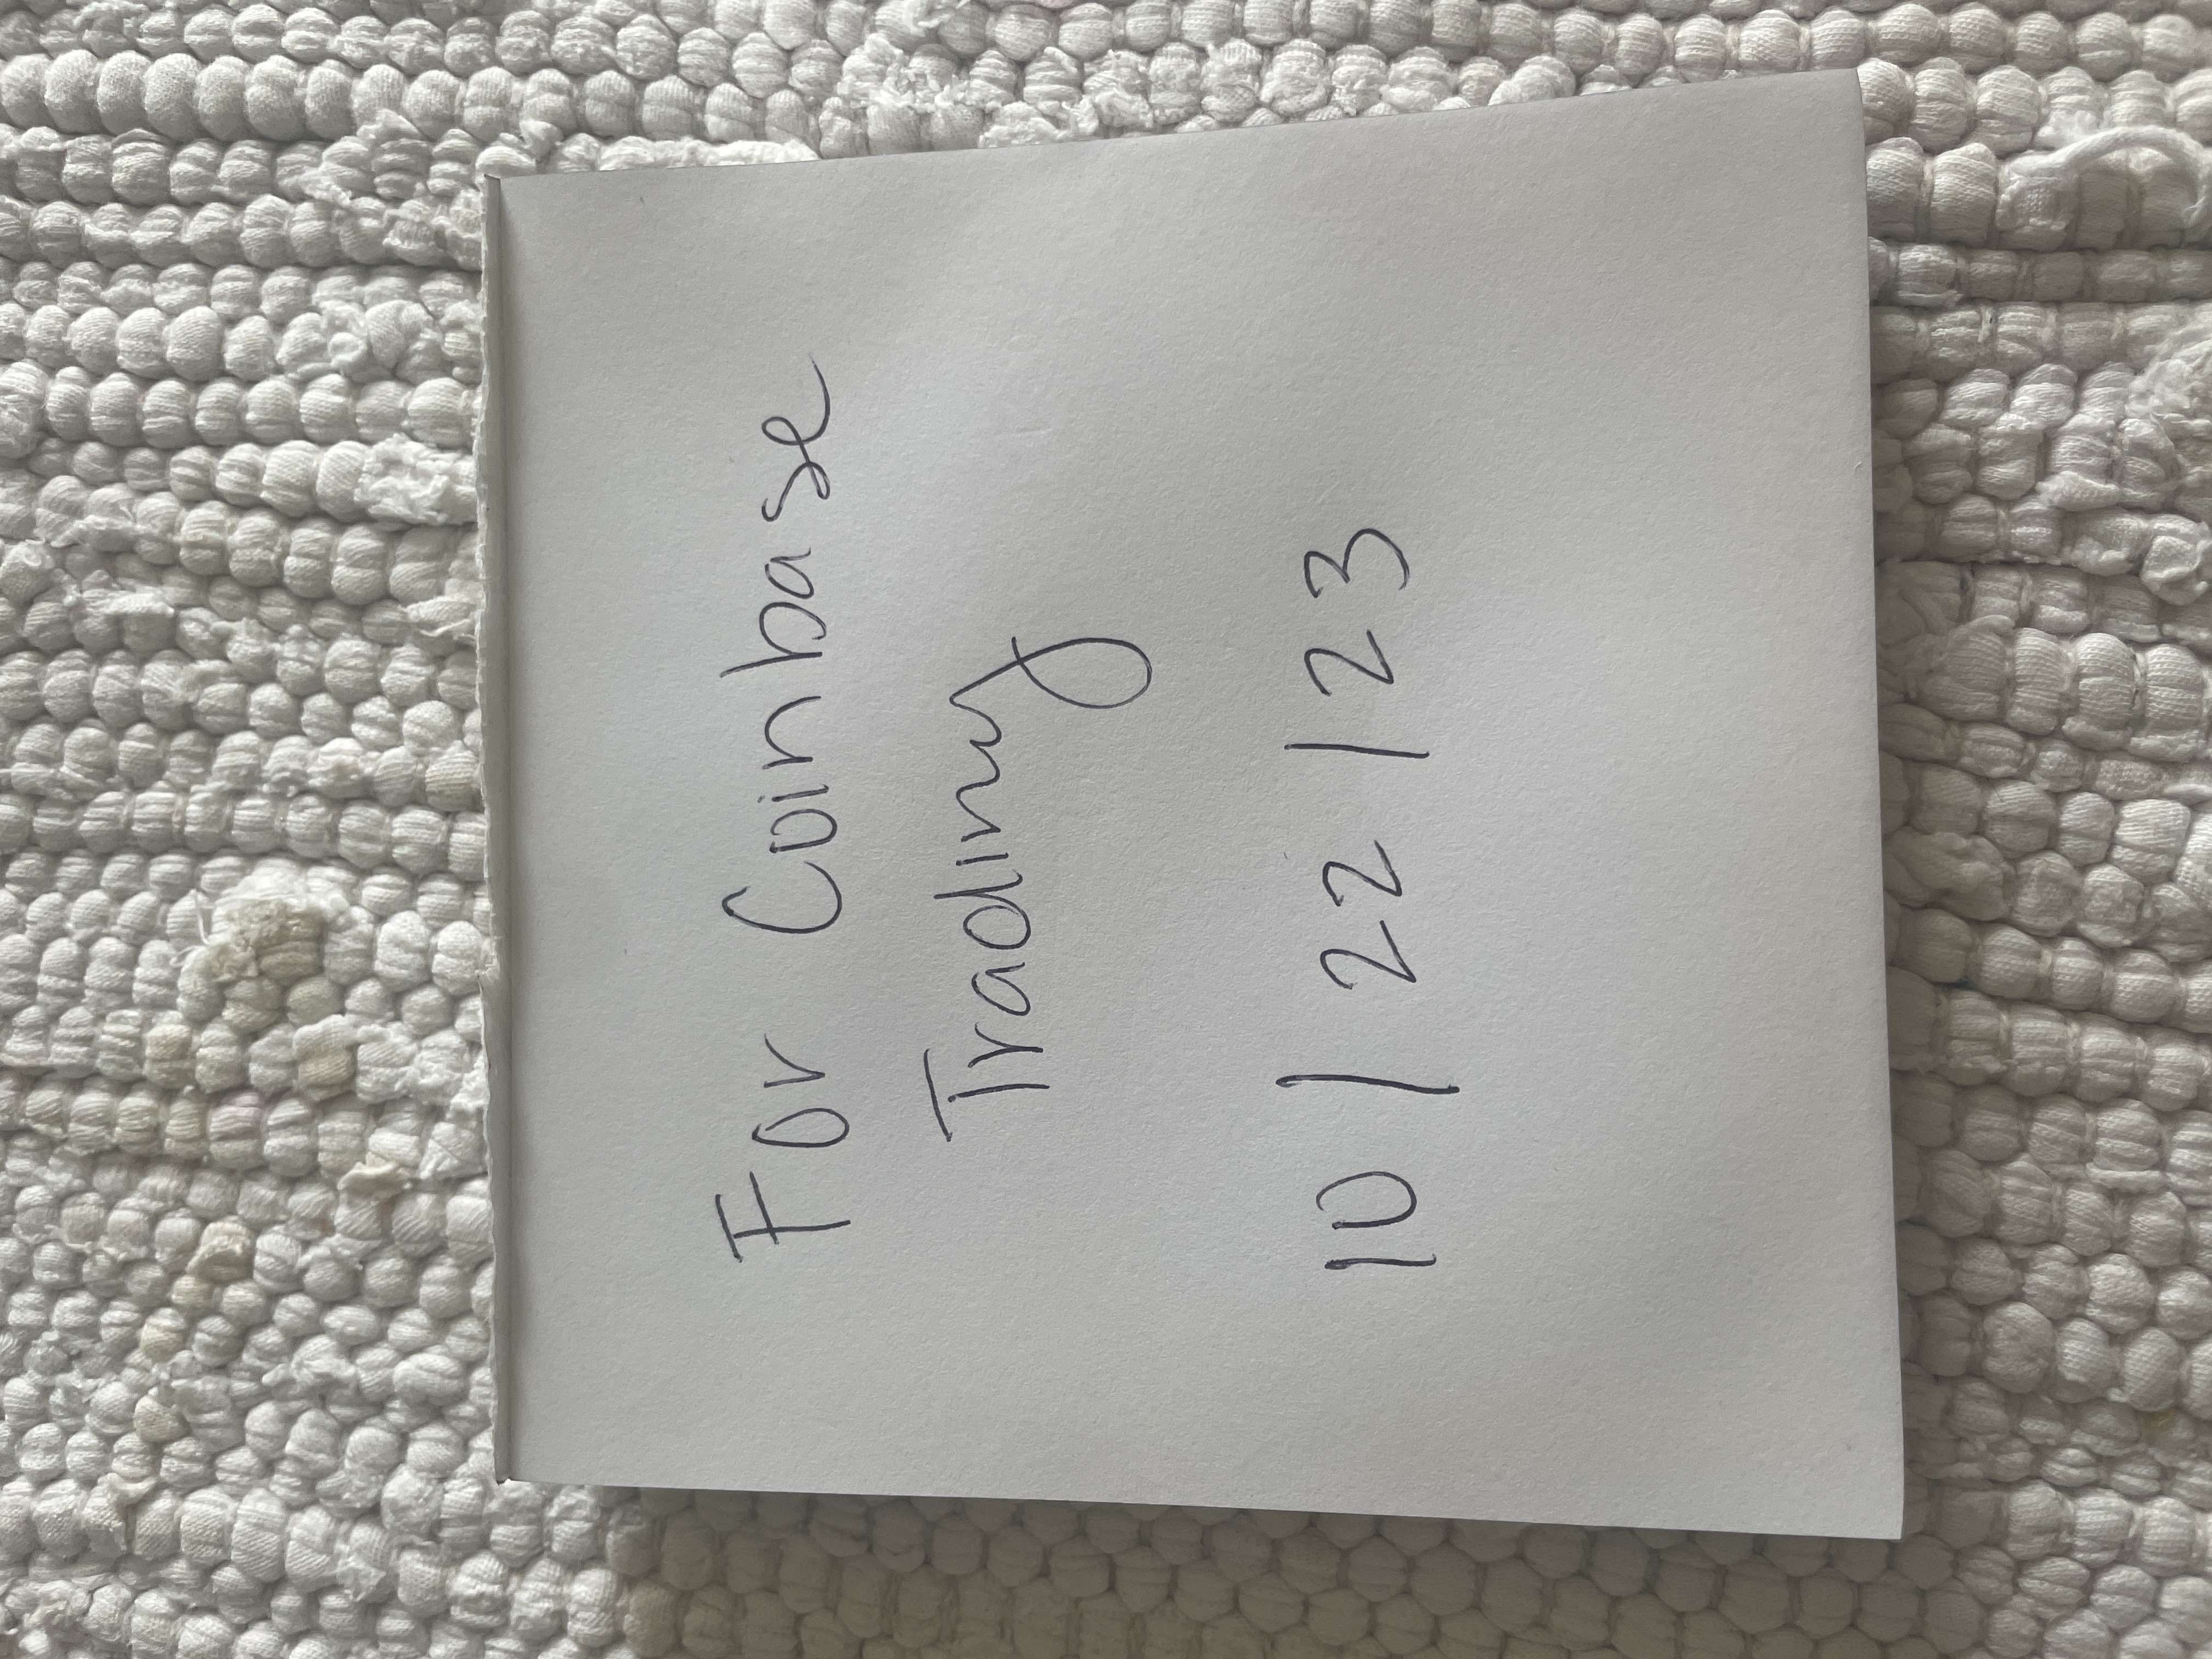 For Coinbase
Trading
10/22/23